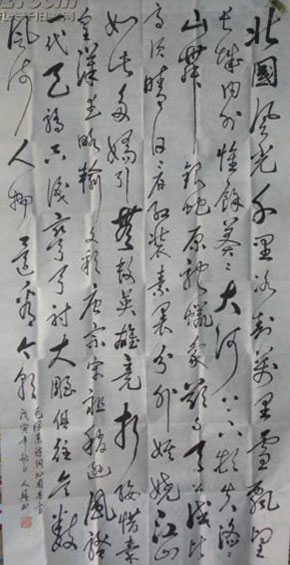 北國風光千里冰封萬里雪飄望
長城内外惟餘莽〻大河上下頓失滔〻
山舞銀蛇原馳蠟象欲与天公試比
高須晴日看紅裝素裹分外妖嬈江山
如此多嬌引無數英雄竞折腰惜秦
皇漢武略輸文彩唐宗宋祖稍遜風骚
一代天驕只識彎弓射大雕俱往矣數
風流人物還看今朝
戊寅年秋日